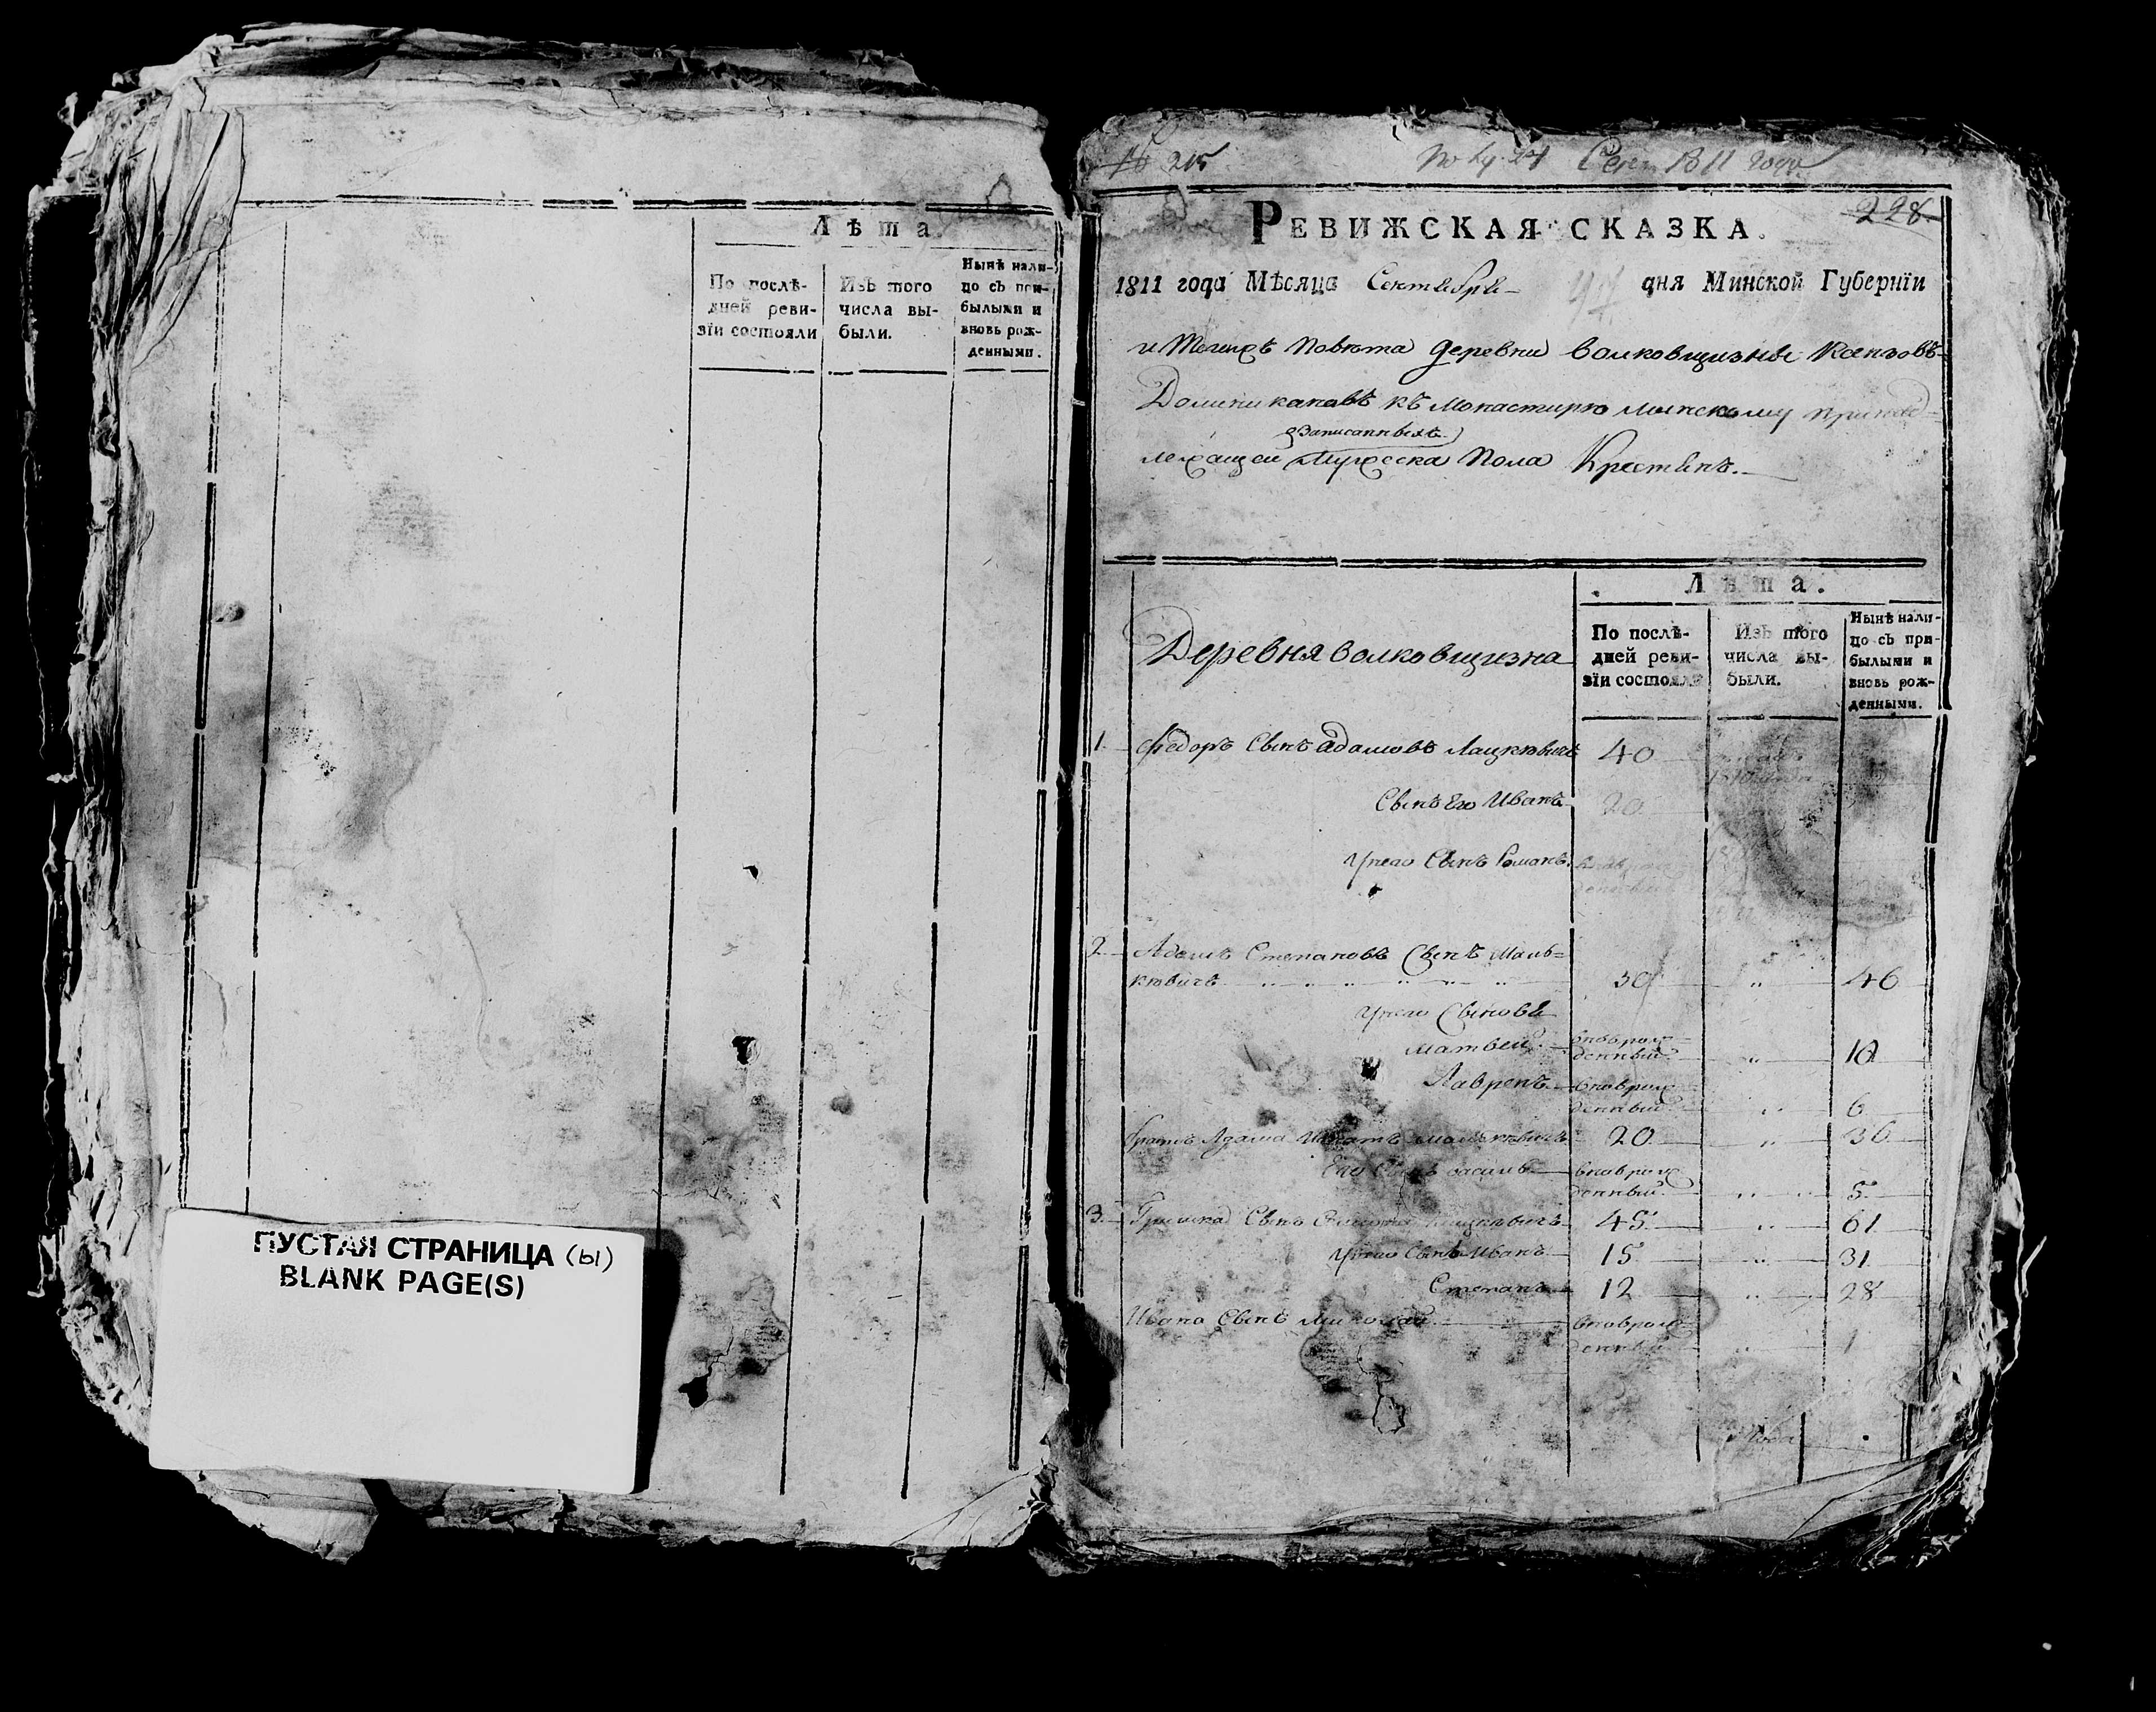 Лѣта.
По послѣ-
дней реви-
зїи состояли
Изъ того
числа вы-
были.
Нынѣ нали-
цо съ при-
былыми и
вновь рож-
денными.
ПУСТАЯ СТРАНИЦА (ы)
BLANK PAGE(S)
215
1811 года
228
РЕВИЖСКАЯ СКАЗКА.
1811 года Мѣсяца Сентября дня Минской Губернїи
и Тогожъ Повѣта Деревни Волковщизны Ксензовъ
Доминикановъ къ Монастирю Минскому принад-
записанныхъ
лежащей Мужеска Пола Крестьянъ.
Лѣта.
Деревня Волковщизна
По послѣ-
дней реви-
зїи состояли
Изъ того
числа вы-
были.
Нынѣ нали-
цо съ при-
былыми и
вновь рож-
денными.
1. Федоръ Сынъ Адамовъ Лацкевичъ 40
Сынъ Его Иванъ 20
Унего Сынъ Романъ
2. Адамъ Степановъ Сынъ Маць=
кевичъ 30 " 46
Унего Сыновя
Матвей вноврож=
денный " 10
Лавренъ вноврож
денный " 6
братъ Адама Игнатъ 20 " 36
Его Сынъ Василь вноврож
денный " 5
3. Гришка Сынъ 45 " 61
Унего Сынъ Иванъ 15 " 31
Степанъ 12 " 28
Ивана Сынъ Миколай вноврож=
денный " 1